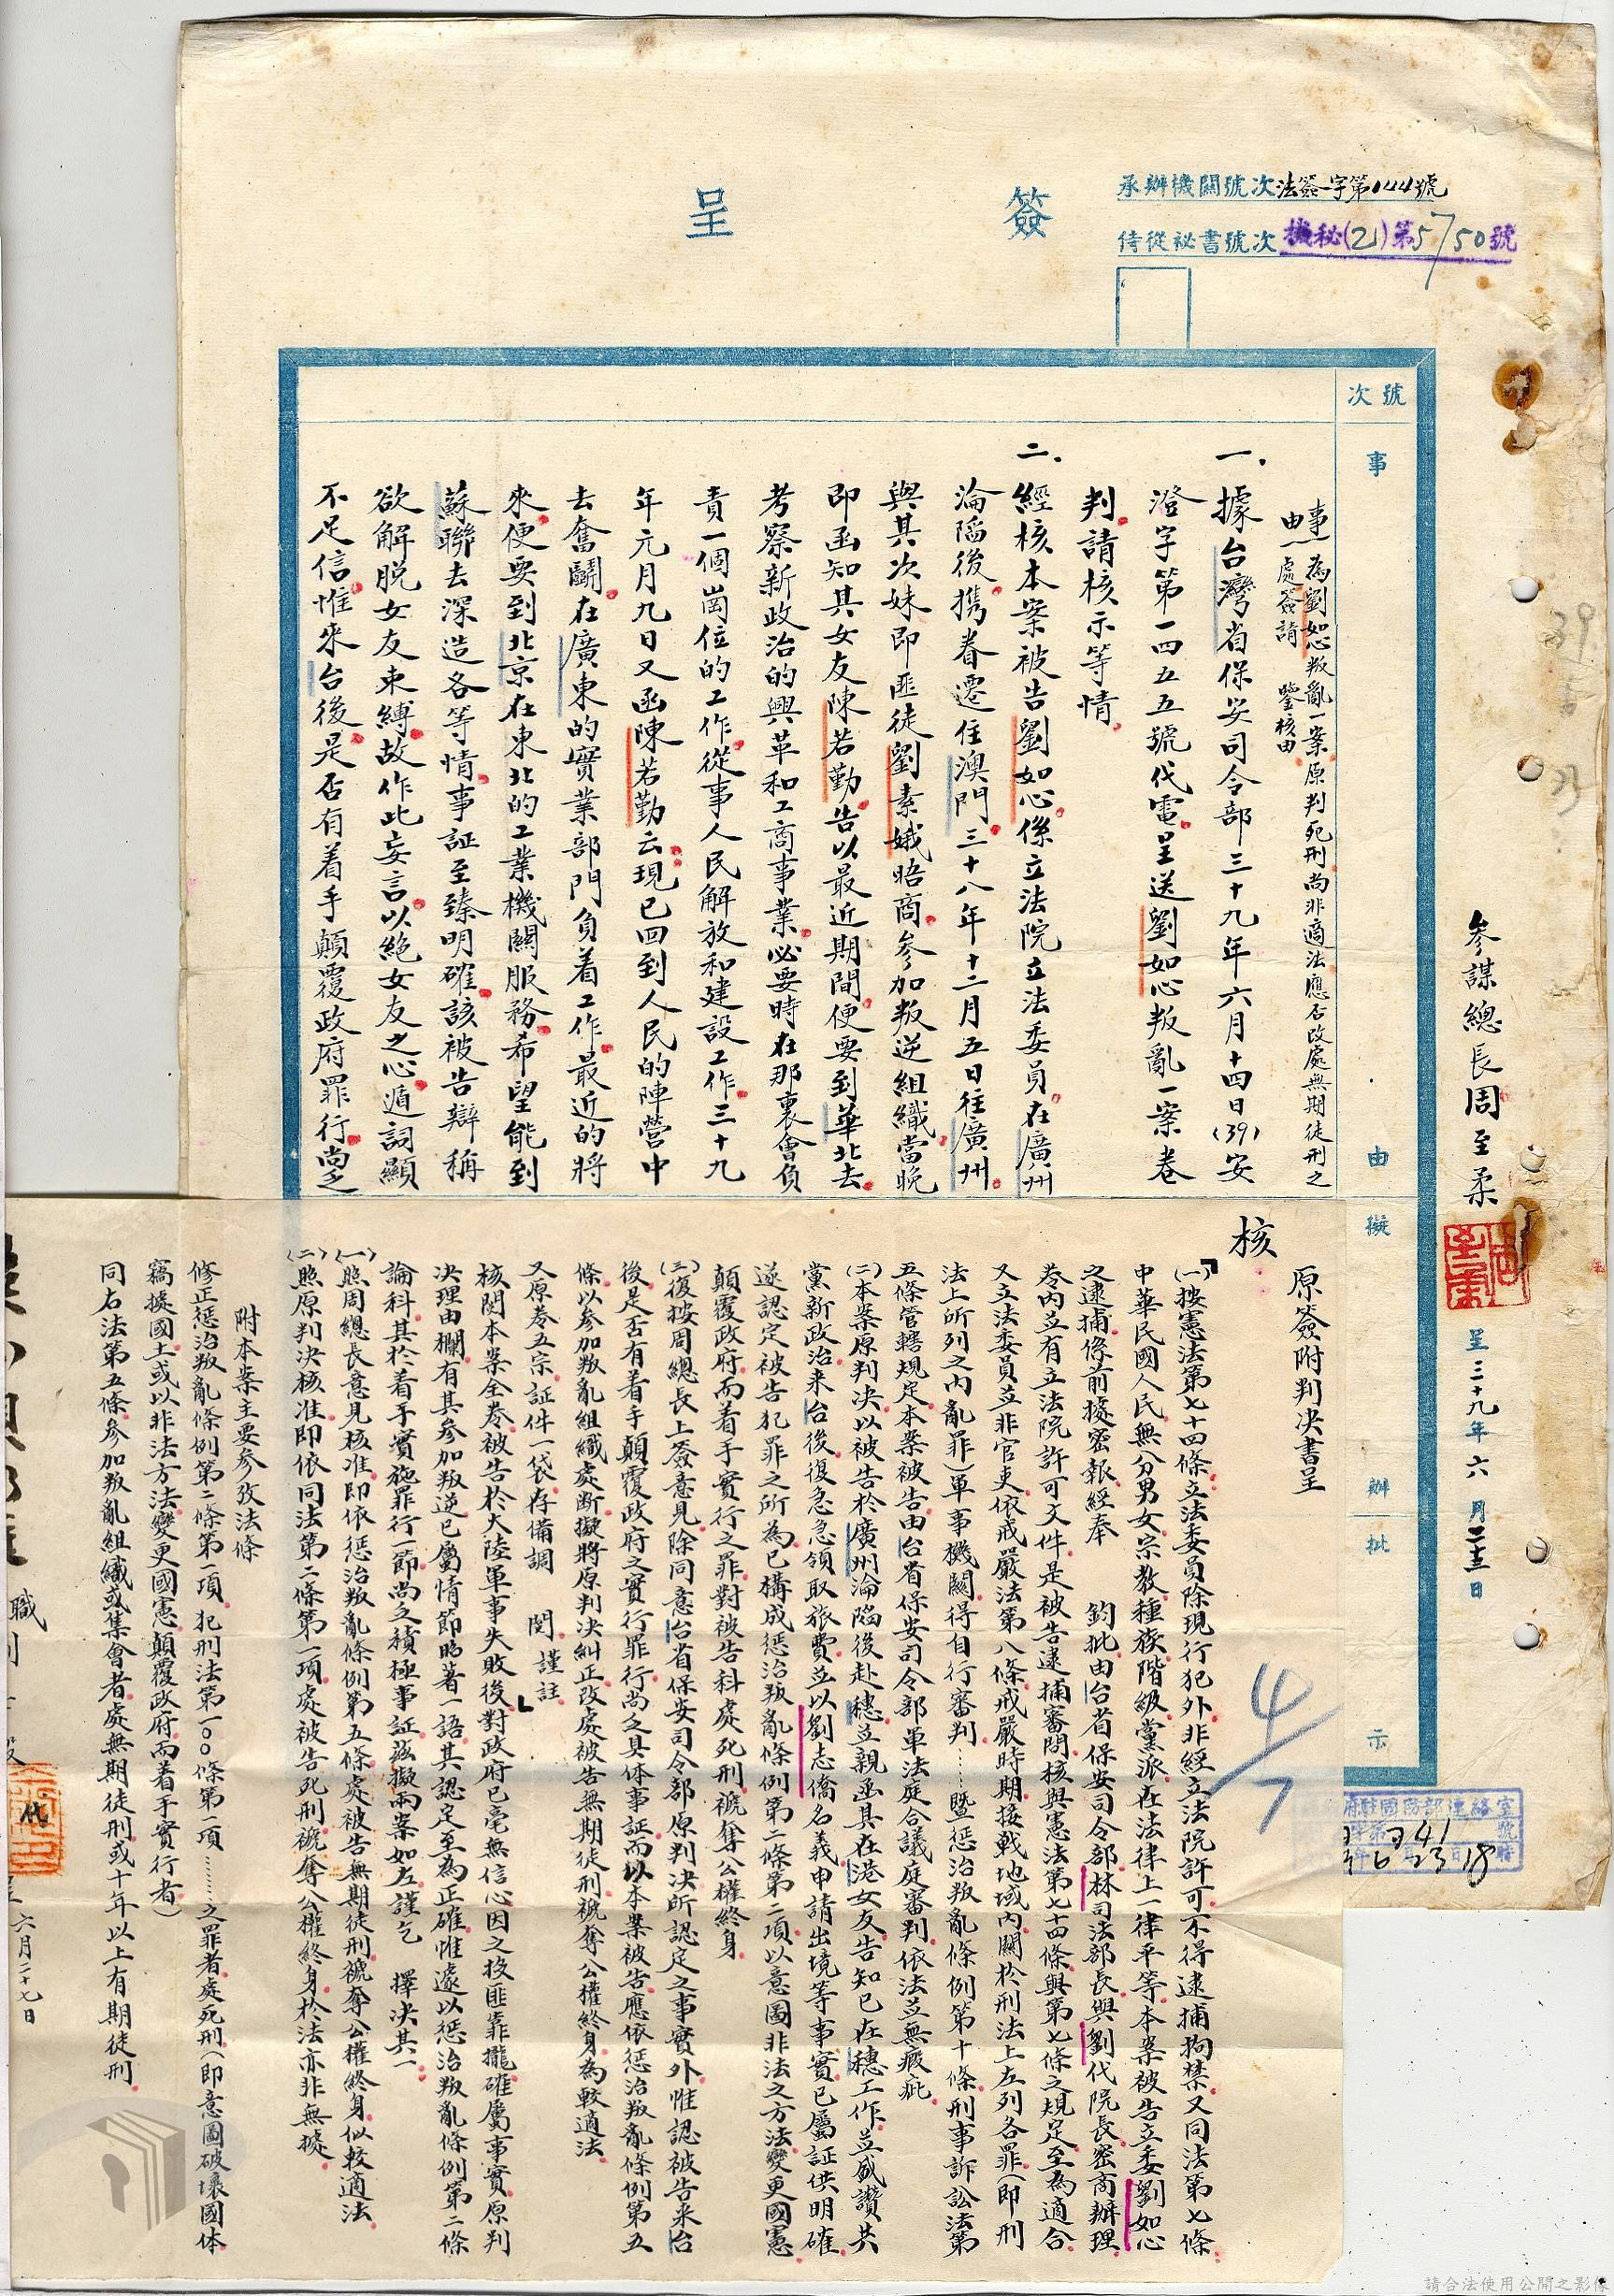 簽呈
承辦機關號次法簽字第144號
侍從祕書號次機秘(21)第5750號
號次
事由
擬辦
批示
參謀總長周至柔
呈三十九年六月
日
事由
為劉如心叛亂一案原判死刑尚非適法應否改處無期徒刑之
處簽請 鑒核由
一.據台灣省保安司令部三十九年六月十四日(39)安
澄字第一四五五號代電呈送劉如心叛亂一案卷
判請核示等情
二.經核本案被告劉如心係立法院立法委員在廣州
淪陷後携眷遷住澳門三十八年十二月五日往廣州
與其次妹即匪徒劉素娥晤商參加叛逆組織當晚
即函知其女友陳若勤告以最近期間便要到華北去
考察新政治的興革和工商事業必要時在那裏會負
責一個崗位的工作從事人民解放和建設工作三十九
年元月九日又函陳若勤云現已回到人民的陣營中
去奮鬪在廣東的實業部門負着工作最近的將
來便要到北京在東北的工業機關服務希望能到
蘇聯去深造各等情事証至臻明確該被告辯稱
欲解脫女友束縛故作此妄言以絕女友之心遁詞顯
不足信惟來台後是否有着手顛覆政府罪行尚乏
核
原簽附判決書呈
(一)按憲法第七十四條立法委員除現行犯外非經立法院許可不得逮捕拘禁又同法第七條
中華民國人民無分男女宗教種族階級黨派在法律上一律平等本案被告立委劉如心
之逮捕係前據密報經奉 鈞批由台省保安司令部林司法部長與劉代院長密商辦理
卷內並有立法院許可文件是被告逮捕審問核與憲法第七十四條與第七條之規定至為適合
又立法委員並非官吏依戒嚴法第八條戒嚴時期接戰地域內關於刑法上左列各罪(即刑
法上所列之內亂罪)軍事機關得自行審判……暨惩治叛亂條例第十條刑事訴訟法第
五條管轄規定本案被告由台省保安司令部軍法庭合議庭審判依法並無瑕疵
(二)本案原判決以被告於廣州淪陷後赴穗並親函其在港女友告知已在穗工作並盛讚共
黨新政治來台後復急急領取旅費並以劉志僑名義申請出境等事實已屬証供明確
遂認定被告犯罪之所為已構成惩治叛亂條例第二條第二項以意圖非法之方法變更國憲
顛覆政府而着手實行之罪對被告科處死刑褫奪公權終身
(三)復按周總長上簽意見除同意台省保安司令部原判決所認定之事實外惟認被告來台
後是否有着手顛覆政府之實行罪行尚乏具体事証而以本案被告應依惩治叛亂條例第五
條以參加叛亂組織處斷擬將原判決糾正改處被告無期徒刑褫奪公權終身為較適法
又原卷五宗証件一袋存備調 閱 謹註
核閱本案全卷被告於大陸軍事失敗後對政府已毫無信心因之投匪靠攏確屬事實原判
決理由欄有其參加叛逆已屬情節昭著一語其認定至為正確惟遽以惩治叛亂條例第二條
論科其於着手實施罪行一節尚乏積極事証茲擬兩案如左謹乞 擇決其一
(一)照周總長意見核准即依惩治叛亂條例第五條處被告無期徒刑褫奪公權終身似較適法
(二)照原判決核准即依同法第二條第一項處被告死刑褫奪公權終身於法亦非無據
附本案主要參攷法條
修正惩治叛亂條例第二條第一項犯刑法第一○○條第一項………之罪者處死刑(即意圖破壞國体
竊據國土或以非法方法變更國憲顛覆政府而着手實行者)
同右法第五條參加叛亂組織或集會者處無期徒刑或十年以上有期徒刑
職
代
六月二十七日
4/7
府駐國防部連絡室
請合法使用公開之影像